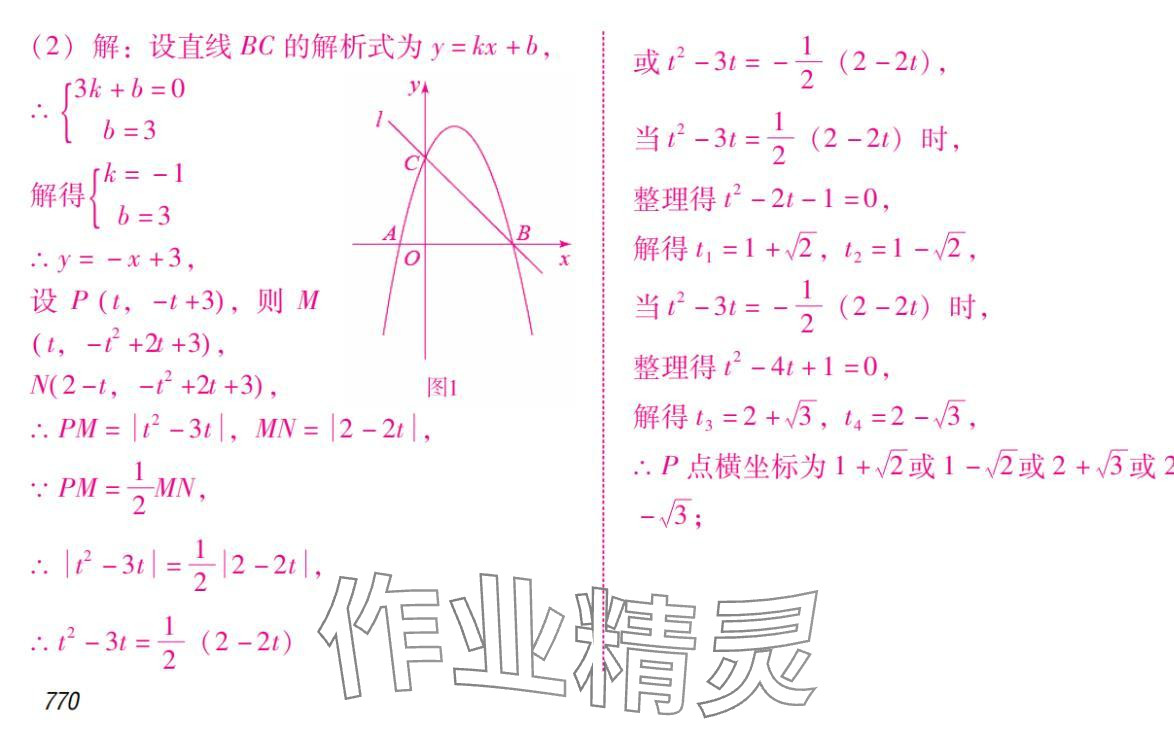 (2) 解：设直线 BC 的解析式为 y=kx+b，
∴ {3k+b=0
b=3
解得{k=-1
b=3
∴ y=-x+3，
设 P (t, -t+3)，则 M
(t, -t²+2t+3)，
N(2-t, -t²+2t+3)，
∴ PM=|t²-3t|，MN=|2-2t|，
∵ PM=1/2 MN，
∴ |t²-3t|=1/2|2-2t|，
∴ t²-3t=1/2 (2-2t)
770
y
l
C
A
B
O
x
图1
或 t²-3t=-1/2 (2-2t)，
当 t²-3t=1/2 (2-2t) 时，
整理得 t²-2t-1=0，
解得 t₁=1+√2，t₂=1-√2，
当 t²-3t=-1/2 (2-2t) 时，
整理得 t²-4t+1=0，
解得 t₃=2+√3，t₄=2-√3，
∴ P 点横坐标为 1+√2或 1-√2或 2+√3或 2
-√3；
作业精灵